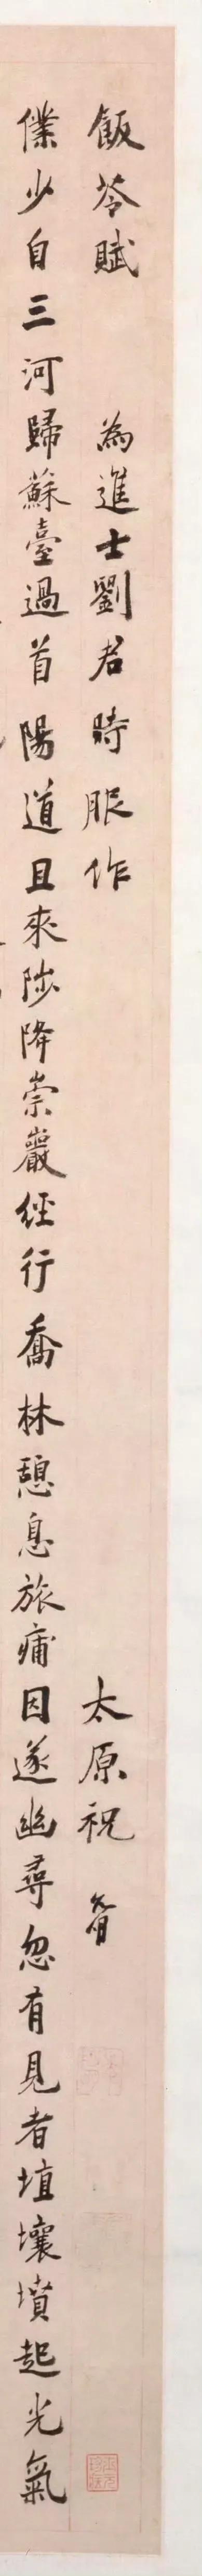 飯苓賦 為進士劉君時服作 太原祝
僕少自三河歸蘇臺過首陽道且來陟降崇巖經行喬林憩息旅痡因遂幽尋忽有見者埴壤墳起光氣